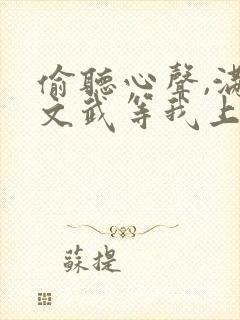 偷聽心聲,滿
文武等我上
蘇提